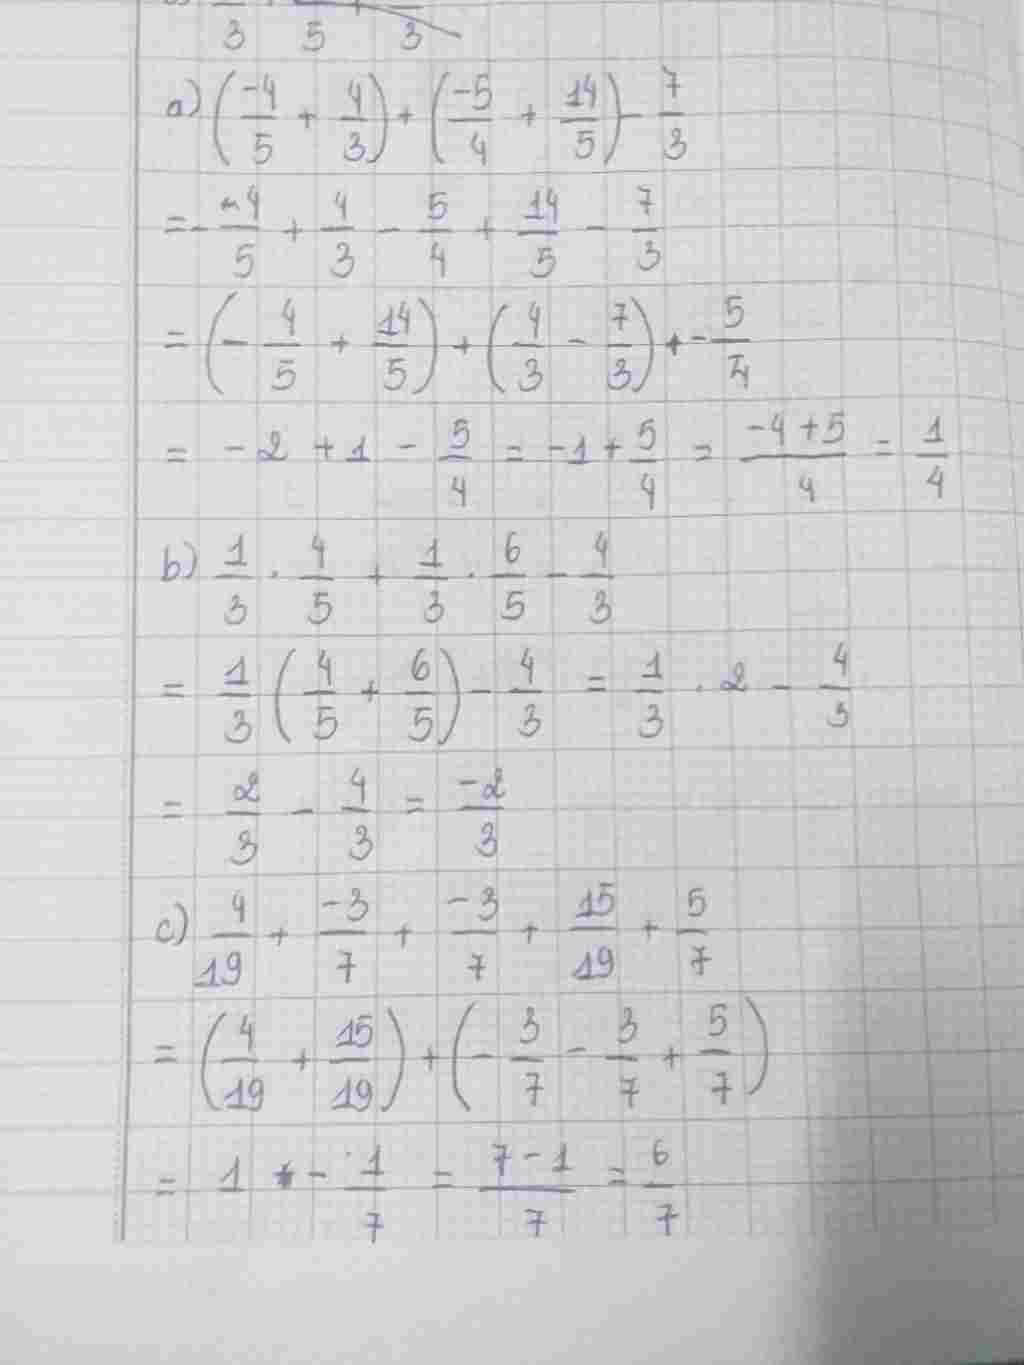 3 5 3
a) (-4/5 + 4/3) + (-5/4 + 14/5) - 7/3
= - -4/5 + 4/3 - 5/4 + 14/5 - 7/3
= (- 4/5 + 14/5) + (4/3 - 7/3) + - 5/4
= - 2 + 1 - 5/4 = -1 + 5/4 = (-4 + 5)/4 = 1/4
b) 1/3 . 4/5 + 1/3 . 6/5 - 4/3
= 1/3 (4/5 + 6/5) - 4/3 = 1/3 . 2 - 4/3
= 2/3 - 4/3 = -2/3
c) 4/19 + -3/7 + -3/7 + 15/19 + 5/7
= (4/19 + 15/19) + (- 3/7 - 3/7 + 5/7)
= 1 - 1/7 = (7 - 1)/7 = 6/7